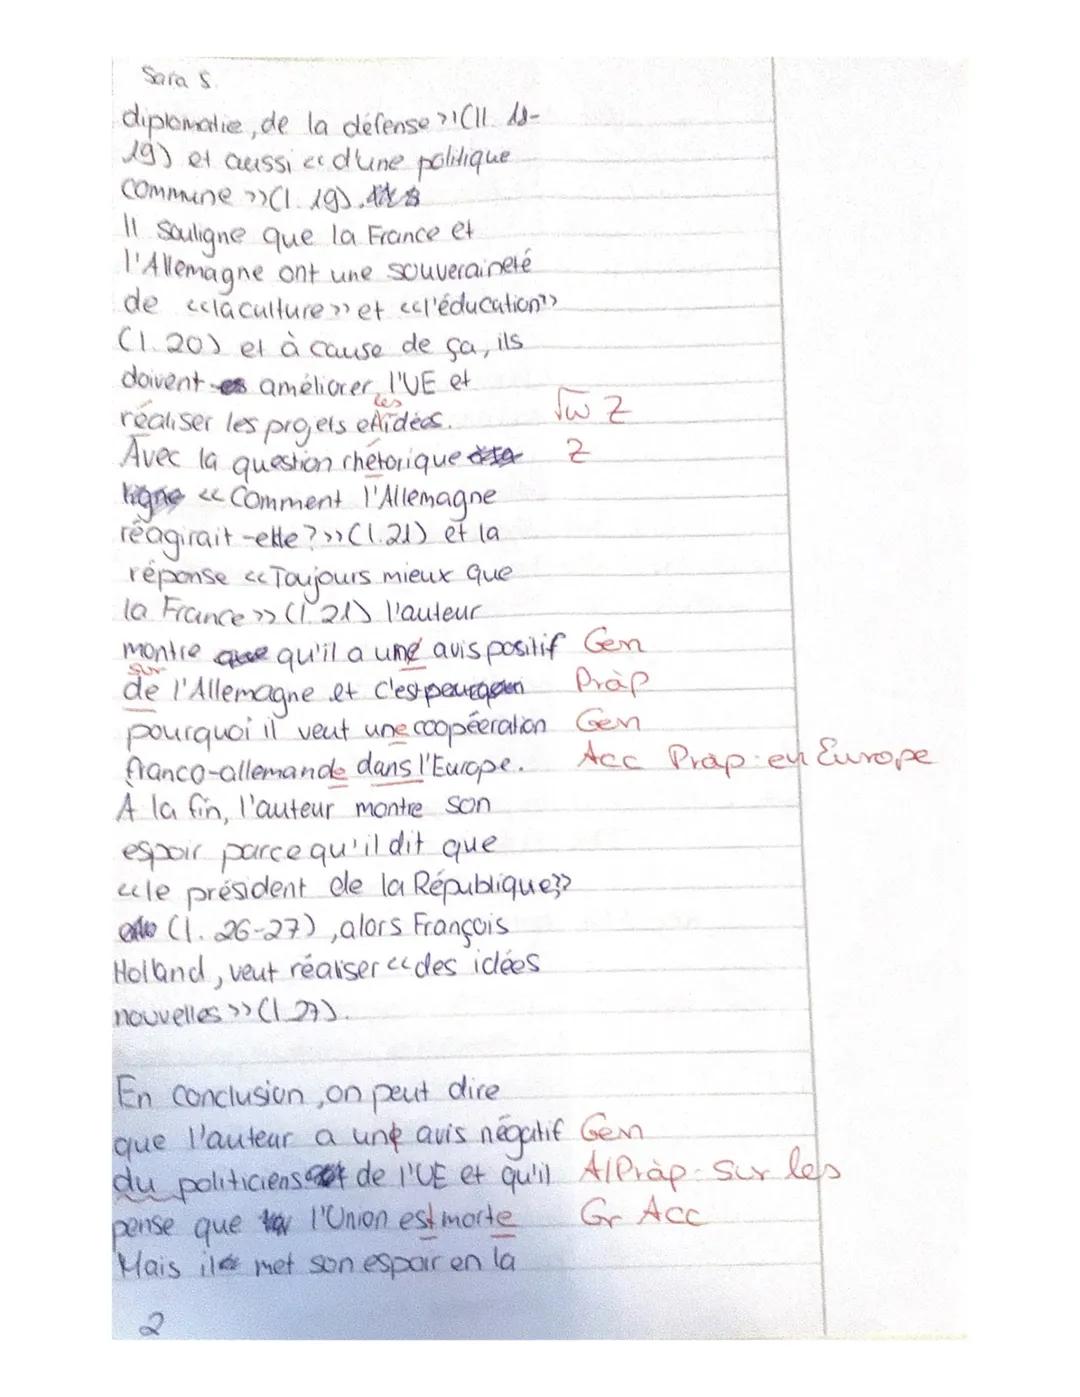 Sara S.
diplomatie, de la défense >> (ll. 18-
19) et aussi << d'une politique
commune >> (l. 19).
Il souligne que la France et
l'Allemagne ont une souveraineté
de << la culture >> et << l'éducation >>
(l. 20) et à cause de ça, ils
doivent améliorer l'UE et
les
réaliser les projets et idées. √w Z
Avec la question rhétorique Z
ligne << Comment l'Allemagne
réagirait-elle? >> (l. 21) et la
réponse << Toujours mieux que
la France >> (l. 21) l'auteur
montre qu'il a une avis positif Gen
sur
de l'Allemagne et c'est Präp
pourquoi il veut une coopéeration Gen
franco-allemande dans l'Europe. Acc Präp: en Europe
A la fin, l'auteur montre son
espoir parce qu'il dit que
<< le président de la République >>
(l. 26-27), alors François
Holland, veut réaliser << des idées
nouvelles >> (l. 27).
En conclusion, on peut dire
que l'auteur a une avis négatif Gen
du politiciens de l'UE et qu'il A/Präp: sur les
pense que l'Union est morte Gr Acc
Mais il met son espoir en la
2